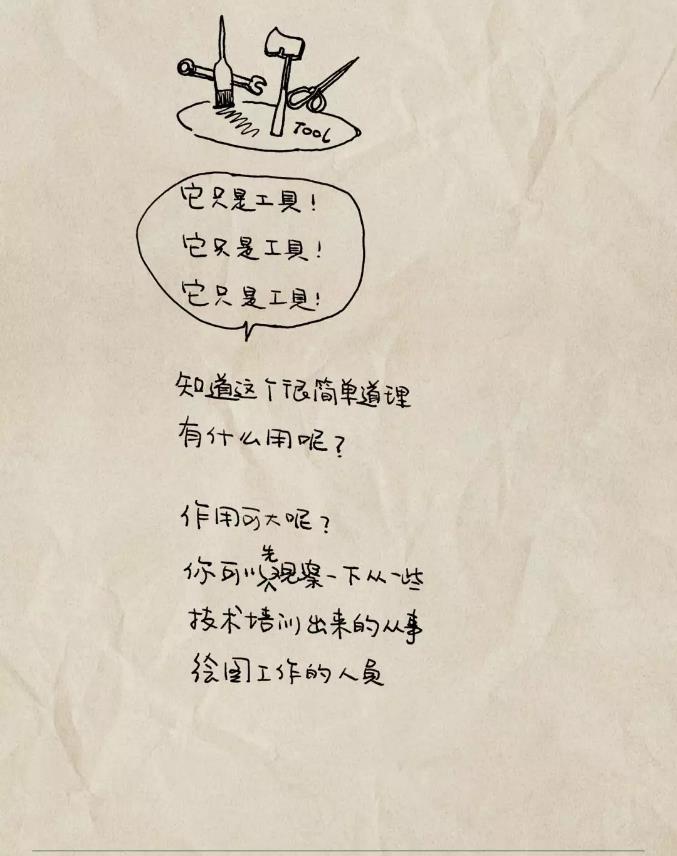 TOOL
它只是工具!
它只是工具!
它只是工具!
知道这个很简单道理
有什么用呢?
作用可大呢?
你可以先观察一下从一些
技术培训出来的从事
绘图工作的人员